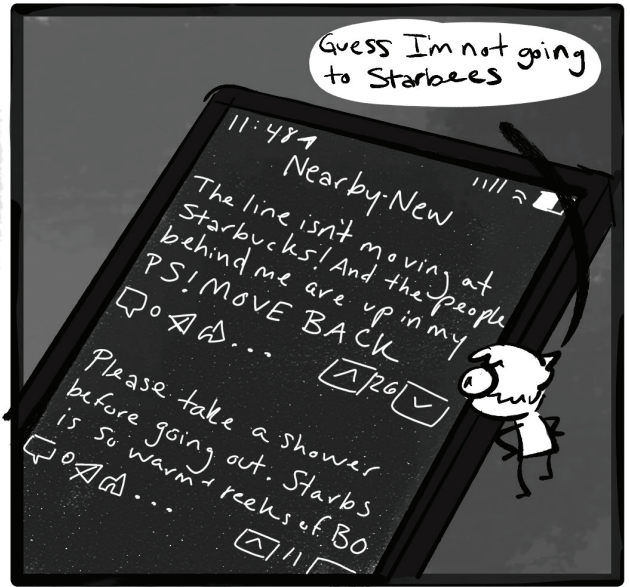 Guess I'm not going
to Starbees
11:48
Nearby-New
The line isn't moving at
Starbucks! And the people
behind me are up in my
PS! MOVE BACK
0
...
26
Please take a shower
before going out. Starbs
is so warm + reeks of BO
0
...
11